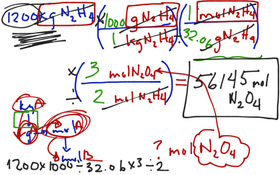 1200 kg N₂H₄ × (1000 g N₂H₄ / 1 kg N₂H₄) (1 mol N₂H₄ / 32.06 g N₂H₄)
× (3 mol N₂O₄ / 2 mol N₂H₄) = 56145 mol N₂O₄
÷
kg A
g A → mol A
mol B
? mol N₂O₄
1200 × 1000 ÷ 32.06 × 3 ÷ 2